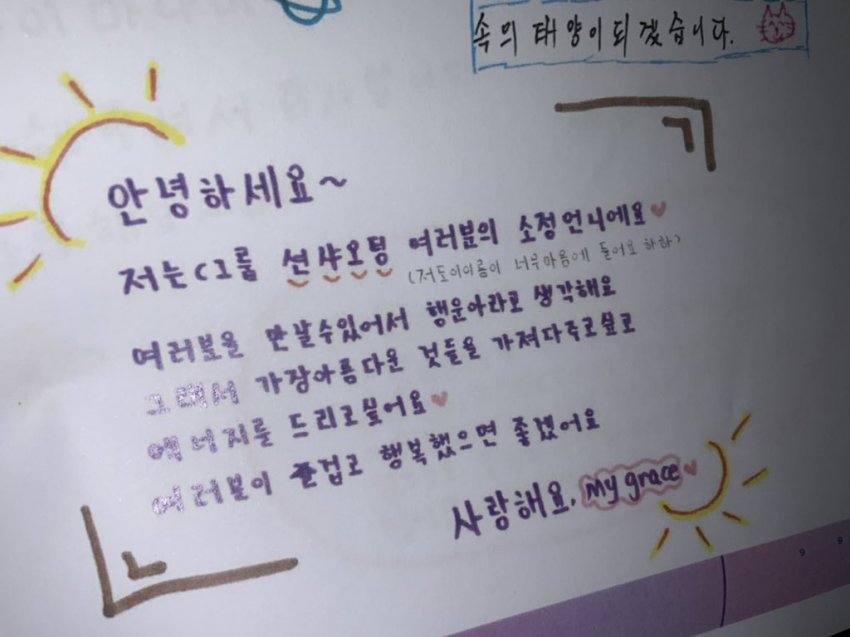 속의 태양이되겠습니다.
안녕하세요~
저는 C그룹 션샤오팅 여러분의 소정언니에요♥
(저도이이름이 너무마음에 들어요 하하)
여러분을 만날수있어서 행운아라고 생각해요
그래서 가장아름다운 것들을 가져다주고싶고
에너지를 드리고싶어요♥
여러분이 즐겁고 행복했으면 좋겠어요
사랑해요. My grace♥
9 9